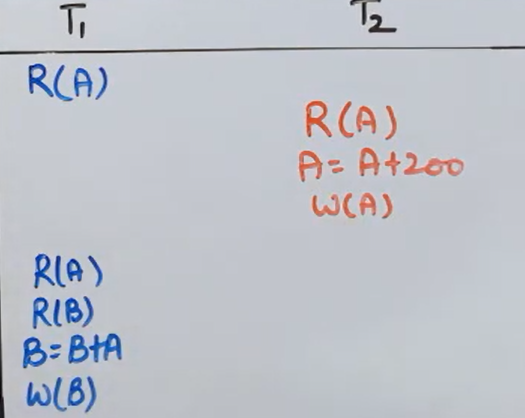 T1 T2
R(A)
R(A)
A= A+200
W(A)
R(A)
R(B)
B=B+A
W(B)